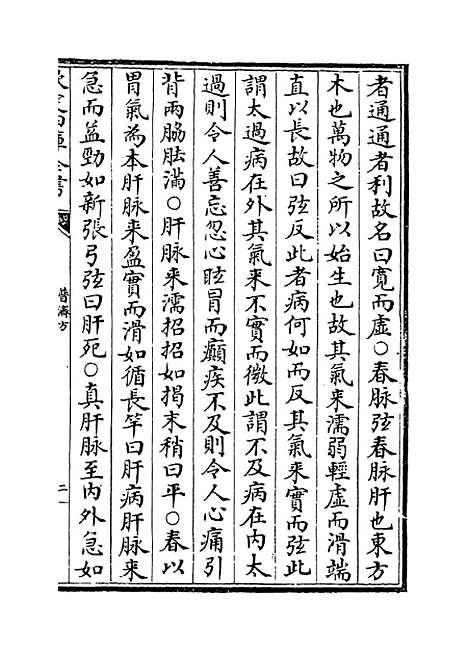 者通通者利故名曰寛而虚○春脉弦春脉肝也東方
木也萬物之所以始生也故其氣来濡弱輕虚而滑端
直以長故曰弦反此者病何如而反其氣来實而弦此
謂太過病在外其氣来不實而微此謂不及病在内太
過則令人善忘忽心眩冒而癲疾不及則令人心痛引
背兩脇胠滿○肝脉来濡招招如揭末稍曰平○春以
胃氣為本肝脉来盈實而滑如循長竿曰肝病肝脉来
急而益勁如新張弓弦曰肝死○真肝脉至内外急如
欽定四庫全書
普濟方